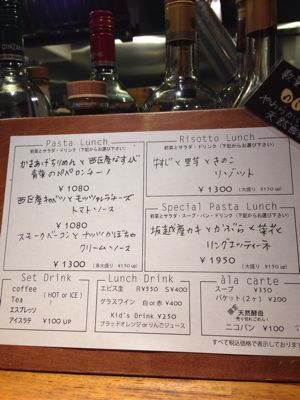 Pasta Lunch
前菜とサラダ・ドリンク (下記からお選び下さい)
かまあげちりめんと西区産なすび
青菜のペペロンチーノ
¥1080
西区産キャベツとモッツァレラチーズ
トマトソース
¥1080
スモークベーコンとナッツかぼちゃ
クリームソース
¥1300 (各大盛り ¥150 up)
Risotto Lunch
前菜とサラダ・ドリンク (下記からお選び下さい)
牛すじと里芋ときのこ
リゾット
¥1300 (大盛り ¥150 up)
Special Pasta Lunch
前菜とサラダ・スープ・パン・ドリンク (下記からお選び下さい)
坂越産カキとかぶらと菜花
リングエッティーネ
¥1950
(大盛り ¥150 up)
Set Drink
coffee
Tea (HOT or ICE)
エスプレッソ
アイスラテ ¥100 UP
Lunch Drink
エビス生 R¥550 S¥400
グラスワイン 白 or 赤 ¥400
Kid's Drink ¥250
ブラッドオレンジ or りんごジュース
àla carte
スープ ¥350
バケット(2ヶ) ¥200
限定 天然酵母
売り切れごめん!
ニコパン ¥100
すべて税込価格で表示しております